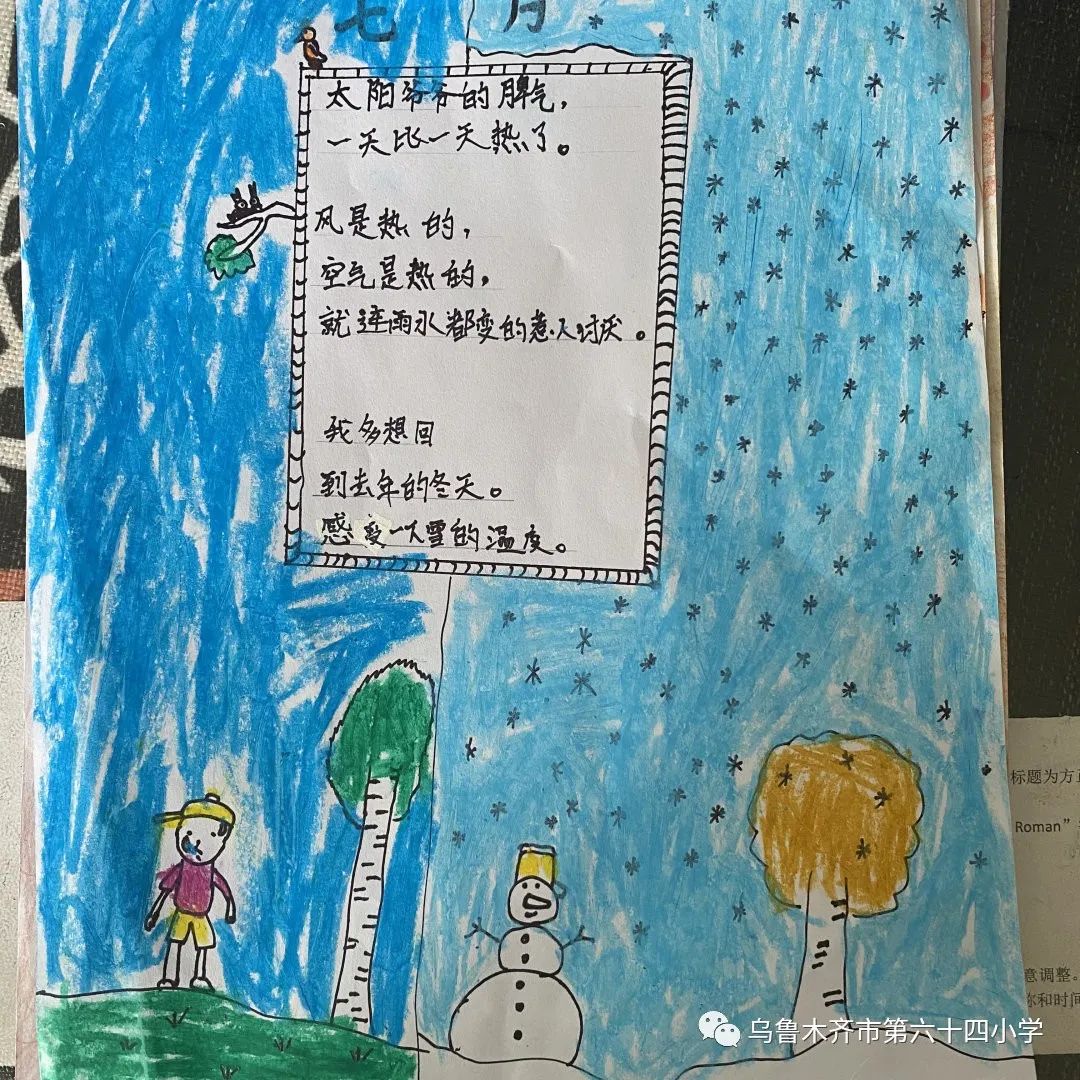 七月
太阳爷爷的脾气，
一天比一天热了。
风是热的，
空气是热的，
就连雨水都变的惹人讨厌。
我多想回
到去年的冬天。
感受一次雪的温度。
标题为方正
Roman”
意调整。
你和时间
乌鲁木齐市第六十四小学